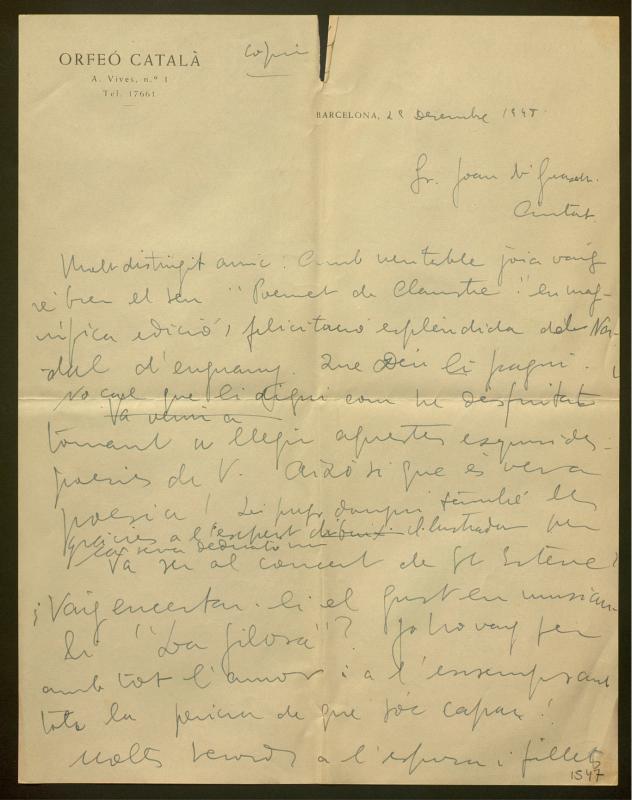 ORFEÓ CATALÀ
A. Vives, n.º 1
Tel. 17661
copia
BARCELONA, 28 Desembre 194
Sr. Joan
Ciutat.
Molt distingit amic: Amb veritable joia vaig
re bren el seu "Poemet de Claustre" en mag-
nífica edició, felicitació esplèndida de Na-
dal d'enguany. Que Déu li pagui.
No cal que li digui com he disfrutat
Va venir a
tornant a llegir aquestes exquisides
poesies de V. Això sí que és vera
poesia! també les
gràcies a l'expert dibuix il·lustrador per
la seva dedicatòria
Va ser al concert de St Esteve?
¿Vaig encertar-li el gust en musicar-
li "La filosa"? Jo ho vaig fer
amb tot l'amor i a l'ensems amb
tota la perícia de que sóc capaç!
Molts records a l'esposa i fillets
1547